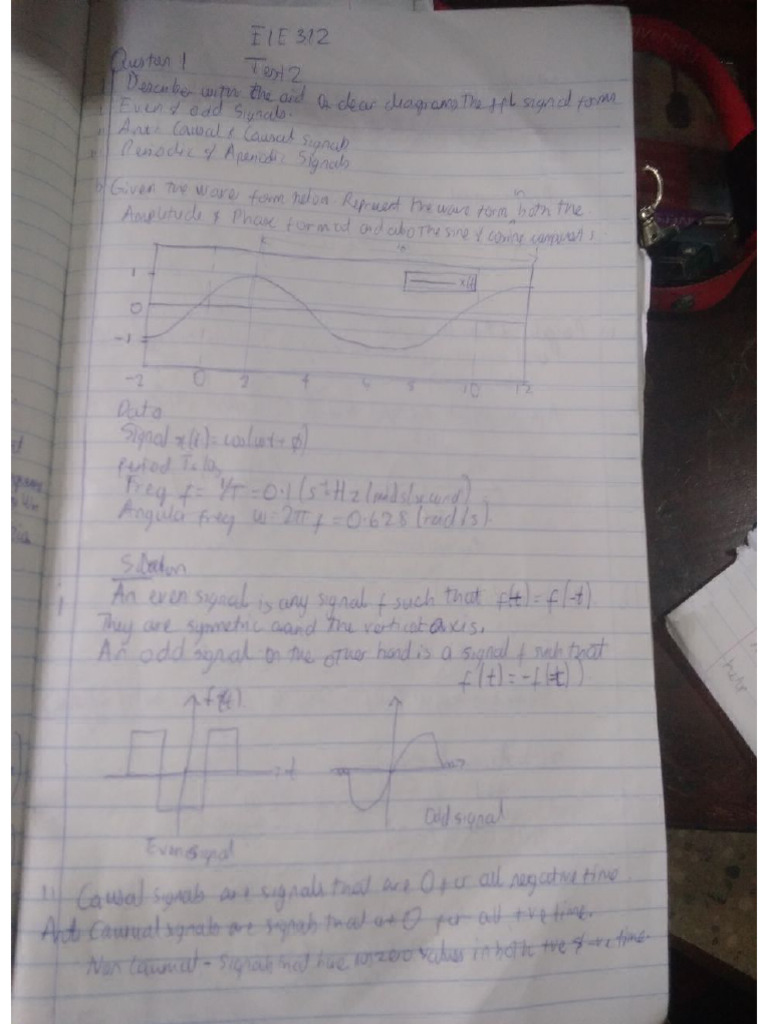 EIE 312
Test 2
Question 1
Describe with the aid of clear diagrams the ff signal forms
i Even & odd Signals.
ii Anti Causal & Causal Signals
iii Periodic & Aperiodic Signals
b Given the wave form below. Represent the wave form in both the
Amplitude & Phase form and also the sine & cosine components.
x(t)
1
0
-1
-2 0 2 4 6 8 10 12
Data
Signal x(t) = cos(wt + φ)
period T = 10s
Freq f = 1/T = 0.1 (s⁻¹Hz
Angular freq w = 2π f = 0.628 (rad/s).
Solution
i An even signal is any signal f such that f(t) = f(-t)
They are symmetric around the vertical axis.
An odd signal on the other hand is a signal f such that
f(t) = -f(-t)
f(t)
t
Even signal
Odd signal
ii Causal signals are signals that are 0 for all negative time.
Anti Causal signals are signals that are 0 for all +ve time.
Non Causal - Signals that have nonzero values in both +ve & -ve time.